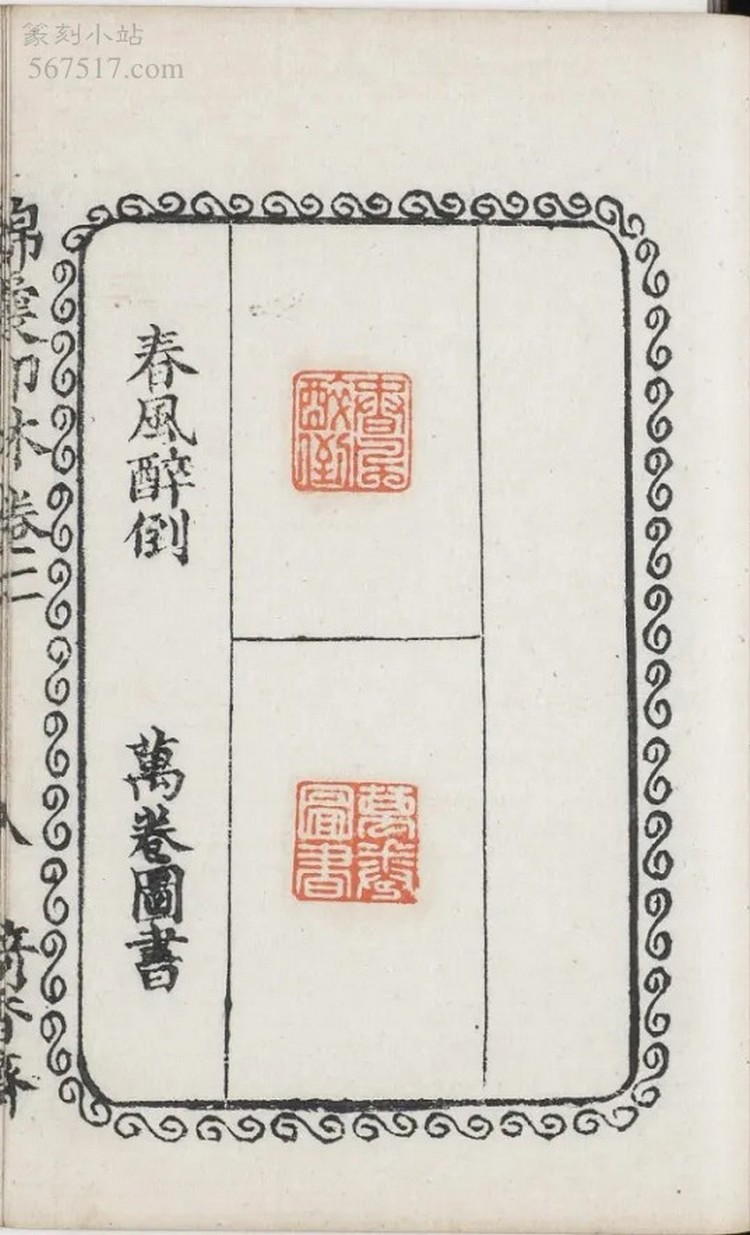 篆刻小站
567517.com
春風醉倒
萬卷圖書
春風醉倒
萬卷圖書
錦囊印林卷二
八